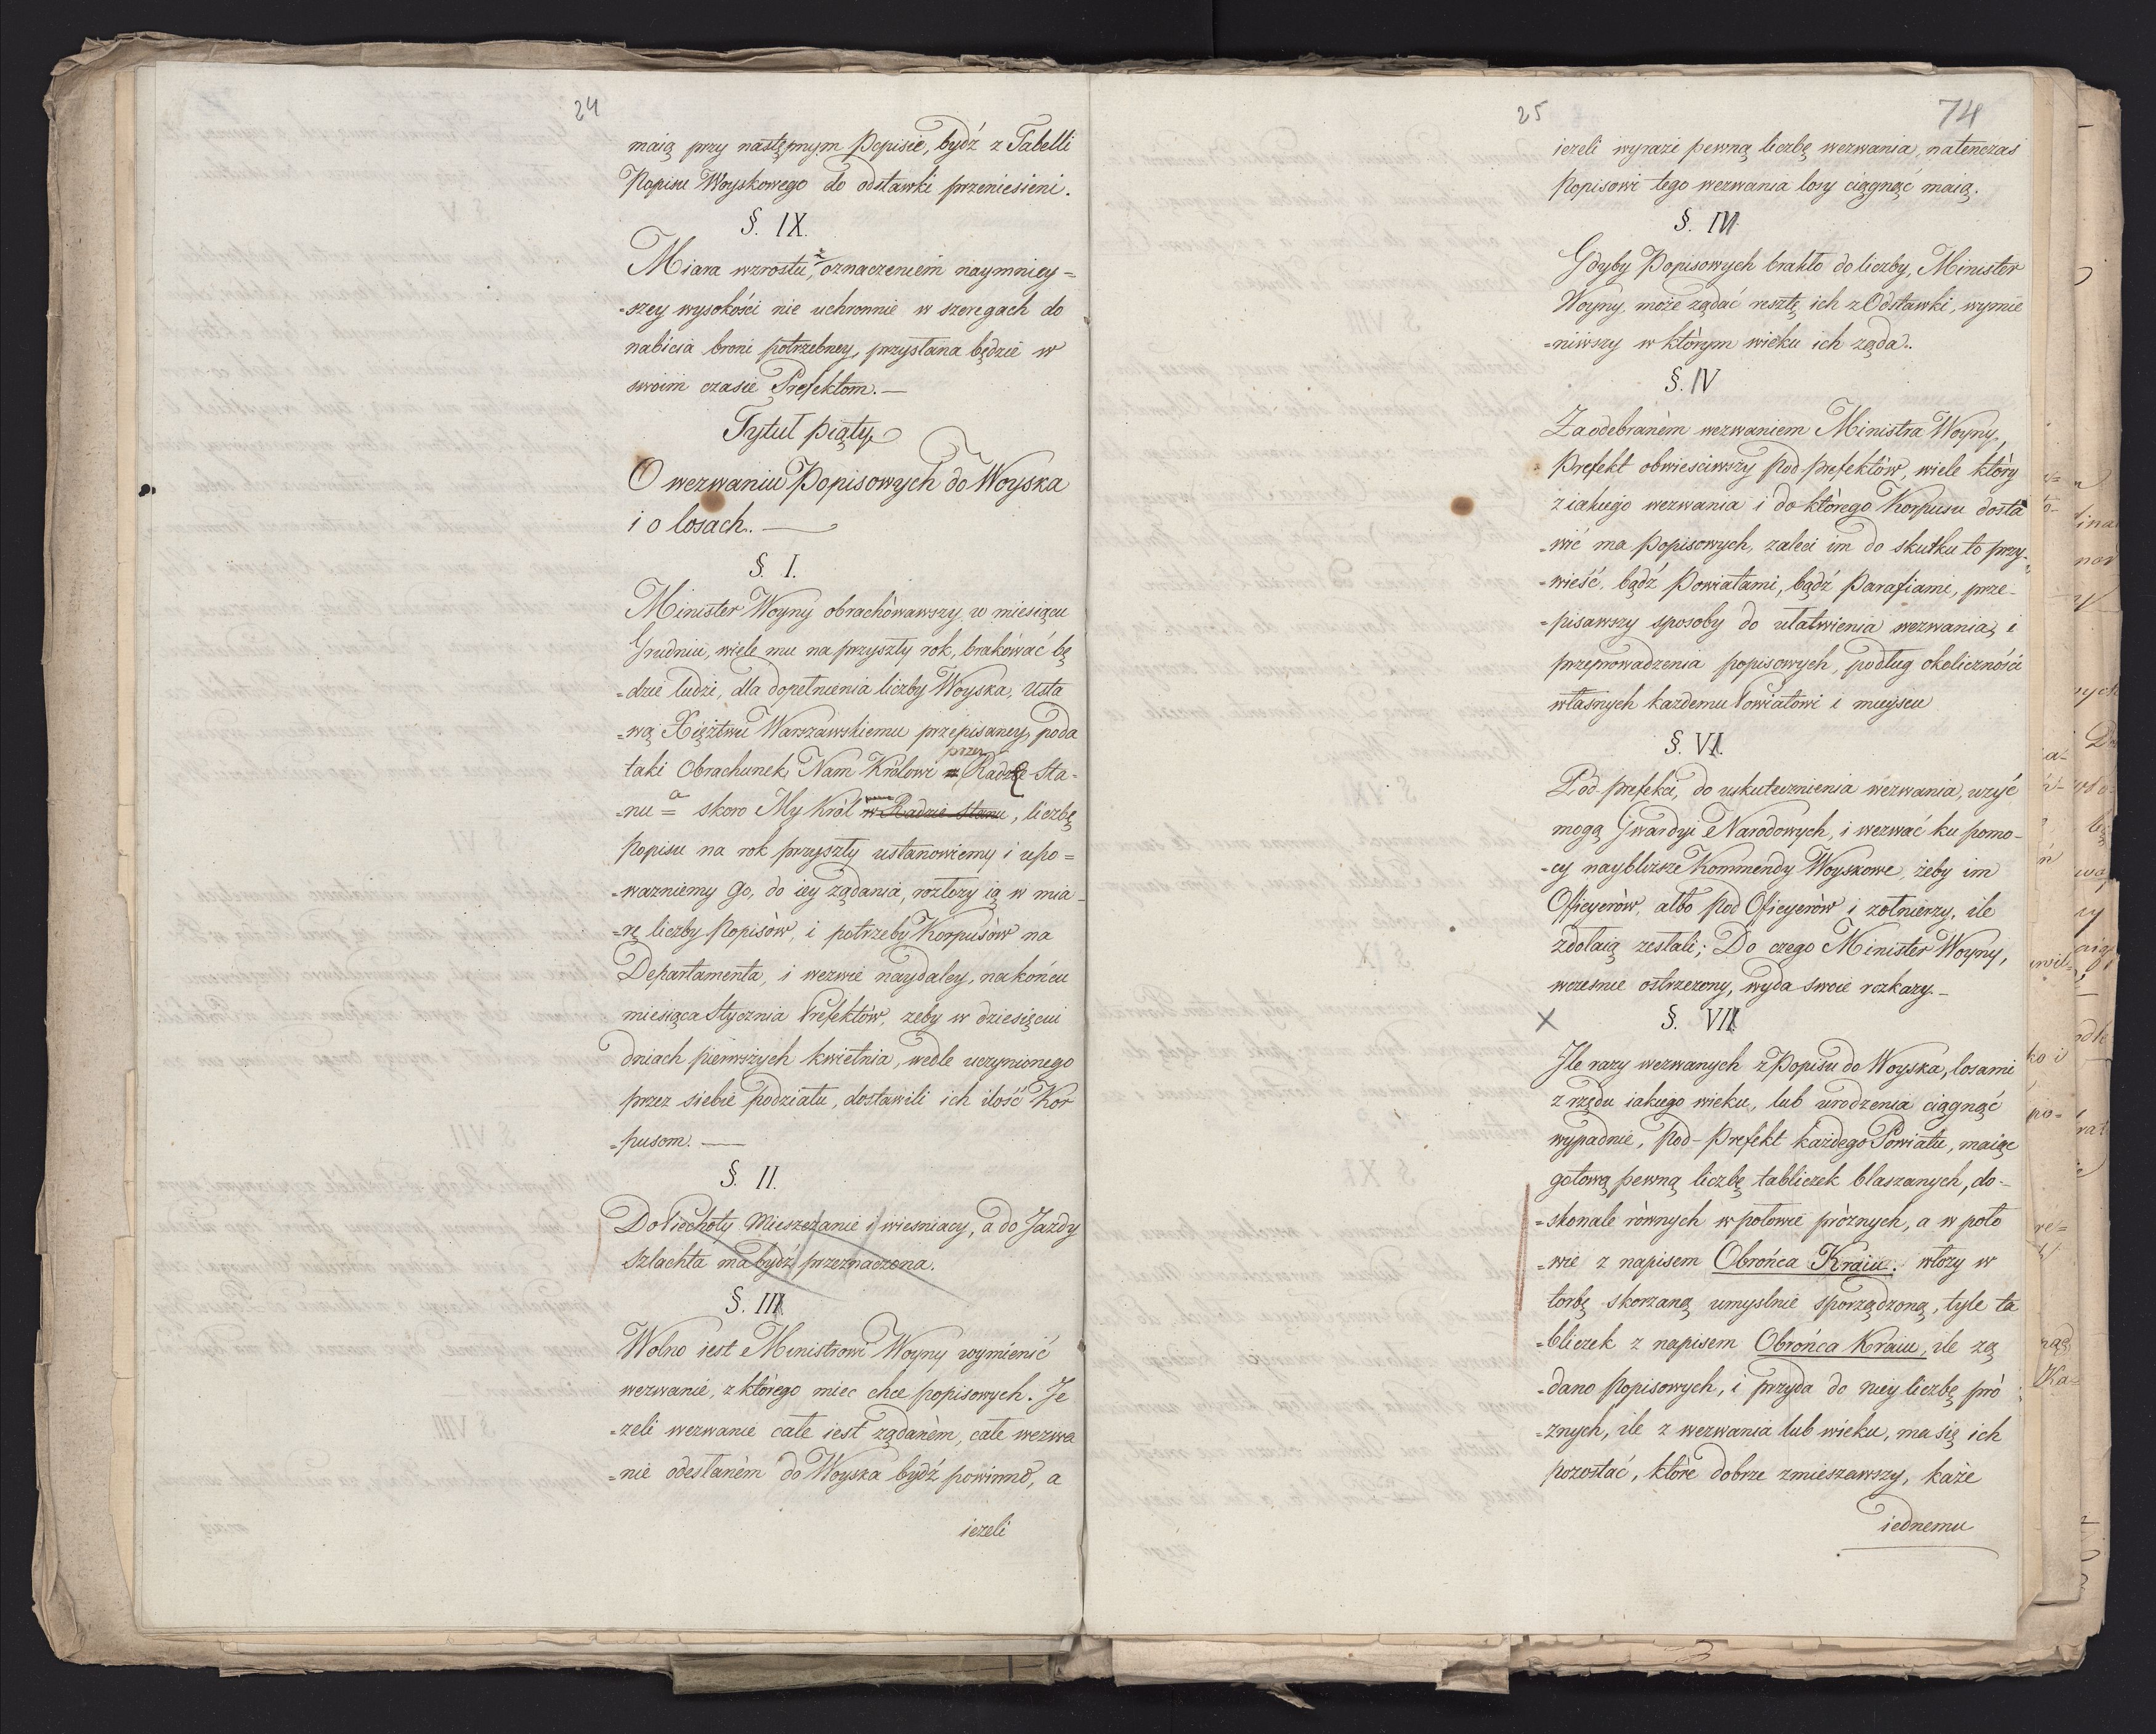 24
maią przy następnym Popisie, bydź z Tabelli
Popisu Woyskowego do odstawki przeniesieni.
§. IX.
Miara wzrostu, z oznaczeniem naymniey=
=szey wysokości nie uchronnie w szeregach do
nabicia broni potrzebney, przysłana będzie w
swoim czasie Prefektom.—
Tytuł piąty
O wezwaniu Popisowych do Woyska
i o losach.—
§. I.
Minister Woyny obrachowawszy w miesiącu
Grudniu, wiele mu na przyszły rok, brakować bę
=dzie ludzi, dla dopełnienia liczby Woyska, Usta
=wą Xięztwu Warszawskiemu przepisaney, poda
taki Obrachunek Nam Królowi przez Radę Sta=
=nu = a skoro My Król w Radzie Stanu, liczbę
Popisu na rok przyszły ustanowiemy i upo=
=ważniemy Go, do iey żądania, rozłoży ią w mia=
=rę liczby Popisów, i potrzeby Korpusów na
Departamenta, i wezwie naydaley, na końcu
miesiąca Stycznia Prefektów, żeby w dziesięciu
dniach pierwszych kwietnia, wedle uczynionego
przez siebie podziału, dostawili ich ilość Kor
=pusom.—
§. II.
Do Piechoty Mieszczanie i wiesniacy, a do Jazdy
Szlachta ma bydź przeznaczona.
§. III
Wolno iest Ministrowi Woyny wymienić
wezwanie, z którego miec chce popisowych. Je
=żeli wezwanie całe iest żądaném, całe wezwa
=nie odesłaném do Woyska bydź powinno, a
ieżeli
25
74
ieżeli wyrazi pewną liczbę wezwania, natenczas
Popisowi tego wezwania losy ciągnąć maią.
§. IV
Gdyby Popisowych brakło do liczby, Minister
Woyny, może żądać resztę ich z Odstawki, wymie
=niwszy w którym wieku ich żąda.
§. IV
Za odebraném wezwaniem Ministra Woyny,
Prefekt obwieściwszy Pod-prefektów, wiele który
z iakiego wezwania i do którego Korpusu dosta
=wić ma Popisowych, zaleci im do skutku to przy=
=wieść, bądź Powiatami, bądź Parafiami, prze=
=pisawszy sposoby do ułatwienia wezwania, i
przeprowadzenia popisowych, podług okoliczności
własnych każdemu Powiatowi i mieyscu
§. VI.
Pod-prefekci, do uskutecznienia wezwania, użyć
mogą Gwardyi Narodowych, i wezwać ku pomo=
=cy naybliższe Kommendy Woyskowe, żeby im
Oficyerów, albo Pod Oficyerów i żołnierzy, ile
zdołaią zesłali; Do czego Minister Woyny,
wcześnie ostrzeżony, wyda swoie rozkazy.—
X §. VII
Jle razy wezwanych z Popisu do Woyska, losami
z rzędu iakiego wieku, lub urodzenia ciągnąć
wypadnie, Pod-Prefekt każdego Powiatu, maiąc
gotową pewną liczbę tabliczek blaszanych, do=
=skonale równych w połowie próżnych, a w poło
=wie z napisem Obrońca Kraiu. włoży w
torbę skorzaną umyslnie sporządzoną, tyle ta
=bliczek z napisem Obrońca Kraiu, ile żą
=dano Popisowych, i przyda do niey liczbę pró
=żnych, ile z wezwania lub wieku, ma się ich
pozostać, które dobrze zmieszawszy, każe
iednemu